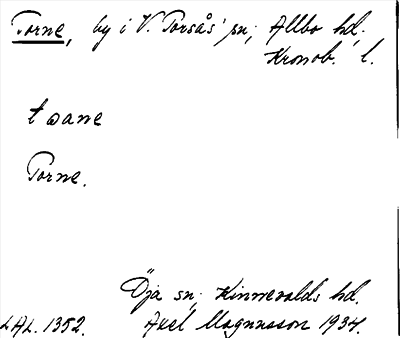 Torne, by i V. Torsås' sn; Allbo hd;
Kronob. l.
Torne.
Öja sn; Kinnevalds hd.
LAL. 1352. Axel Magnusson 1934.